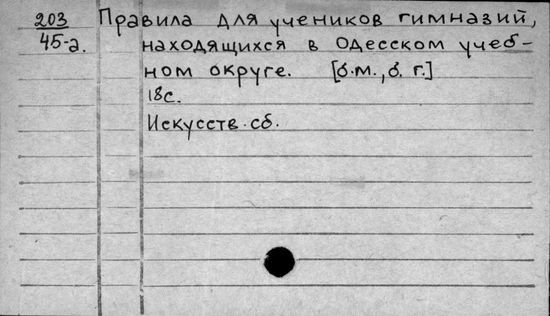 203 Правила для учеников гимназий,
45-а. находящихся в Одесском учеб-
ном округе. [б.м., б. г.]
18с.
Искусств. сб.